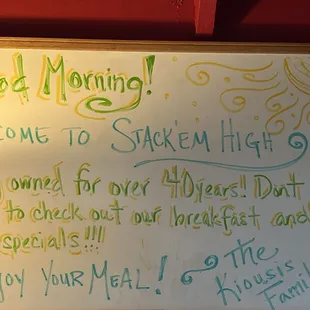 od Morning!
COME TO STACK'EM HIGH
owned for over 40 years! Don't
to check out our breakfast and
specials!!!!
JOY YOUR MEAL!
The
Kiousis
Famil